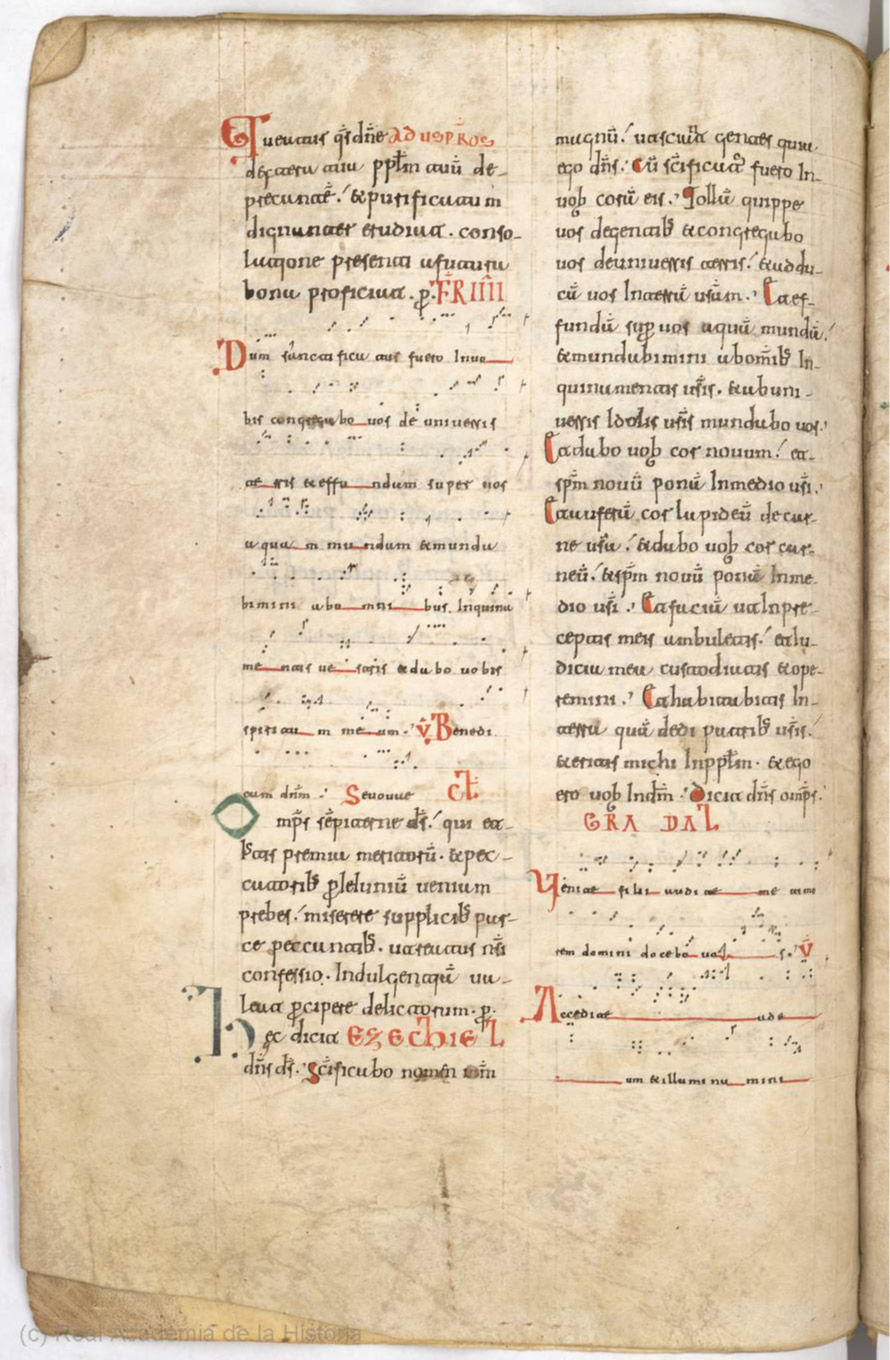 Tueatur q̄s dn̄e AD VSPROS
dextera tua pplm̄ tuū de-
precantē. & purificatum
dignanter erudiat. conso-
latione presenti ut futura
bona proficiat. p. FR IIII
Dum sanctificatus fuero In uo
bis congregabo uos de uniuersis
terris & effundam super uos
aquam mundam & munda
bimini ab omnibus. Inquina
mentis uestris & dabo uobis
spiritum meum. V̄ Benedi
cam dnm̄. Seuouae
Omp̄s sēpiterne ds̄. qui et
premia meritorū. & pec-
catorib; p Ieiuniū ueniam
prebes. miserere supplicib; par-
ce peccantib;. ut reatus nr̄i
confessio. Indulgentiā ua-
leat pcipere delictorum. p.
Hec dicit EZECHIEL
dn̄s ds̄. Sc̄ificabo nomen
magnū. ut sciant gentes quia
ego dn̄s. Cū sc̄ificatus fuero In
uob corā eis. Tollā quippe
uos de gentib; & congregabo
uos de uniuersis terris. & addu-
cā uos In terrā ur̄am. Et ef-
fundā sup uos aquā mundā.
& mundabimini ab omīb; In-
quinamentis ur̄is. & ab uni-
uersis Idolis ur̄is mundabo uos.
Et dabo uob cor nouum. et
spm̄ nouū ponā In medio ur̄i.
Et auferā cor lapideū de car-
ne ur̄a. & dabo uob cor car-
neū. & spm̄ nouū ponā In me-
dio ur̄i. Et faciā ut In pre-
ceptis meis ambuletis. et Iu-
dicia mea custodiatis & ope-
remini. Et habitabitis In
terra quā dedi patrib; ur̄is.
& eritis michi In pplm̄. & ego
ero uob In dm̄. Dicit dn̄s omp̄s.
GRADAL
Venite filii audite me timo
rem domini docebo uos. V̄
Accedite ad e
um & illumina mini